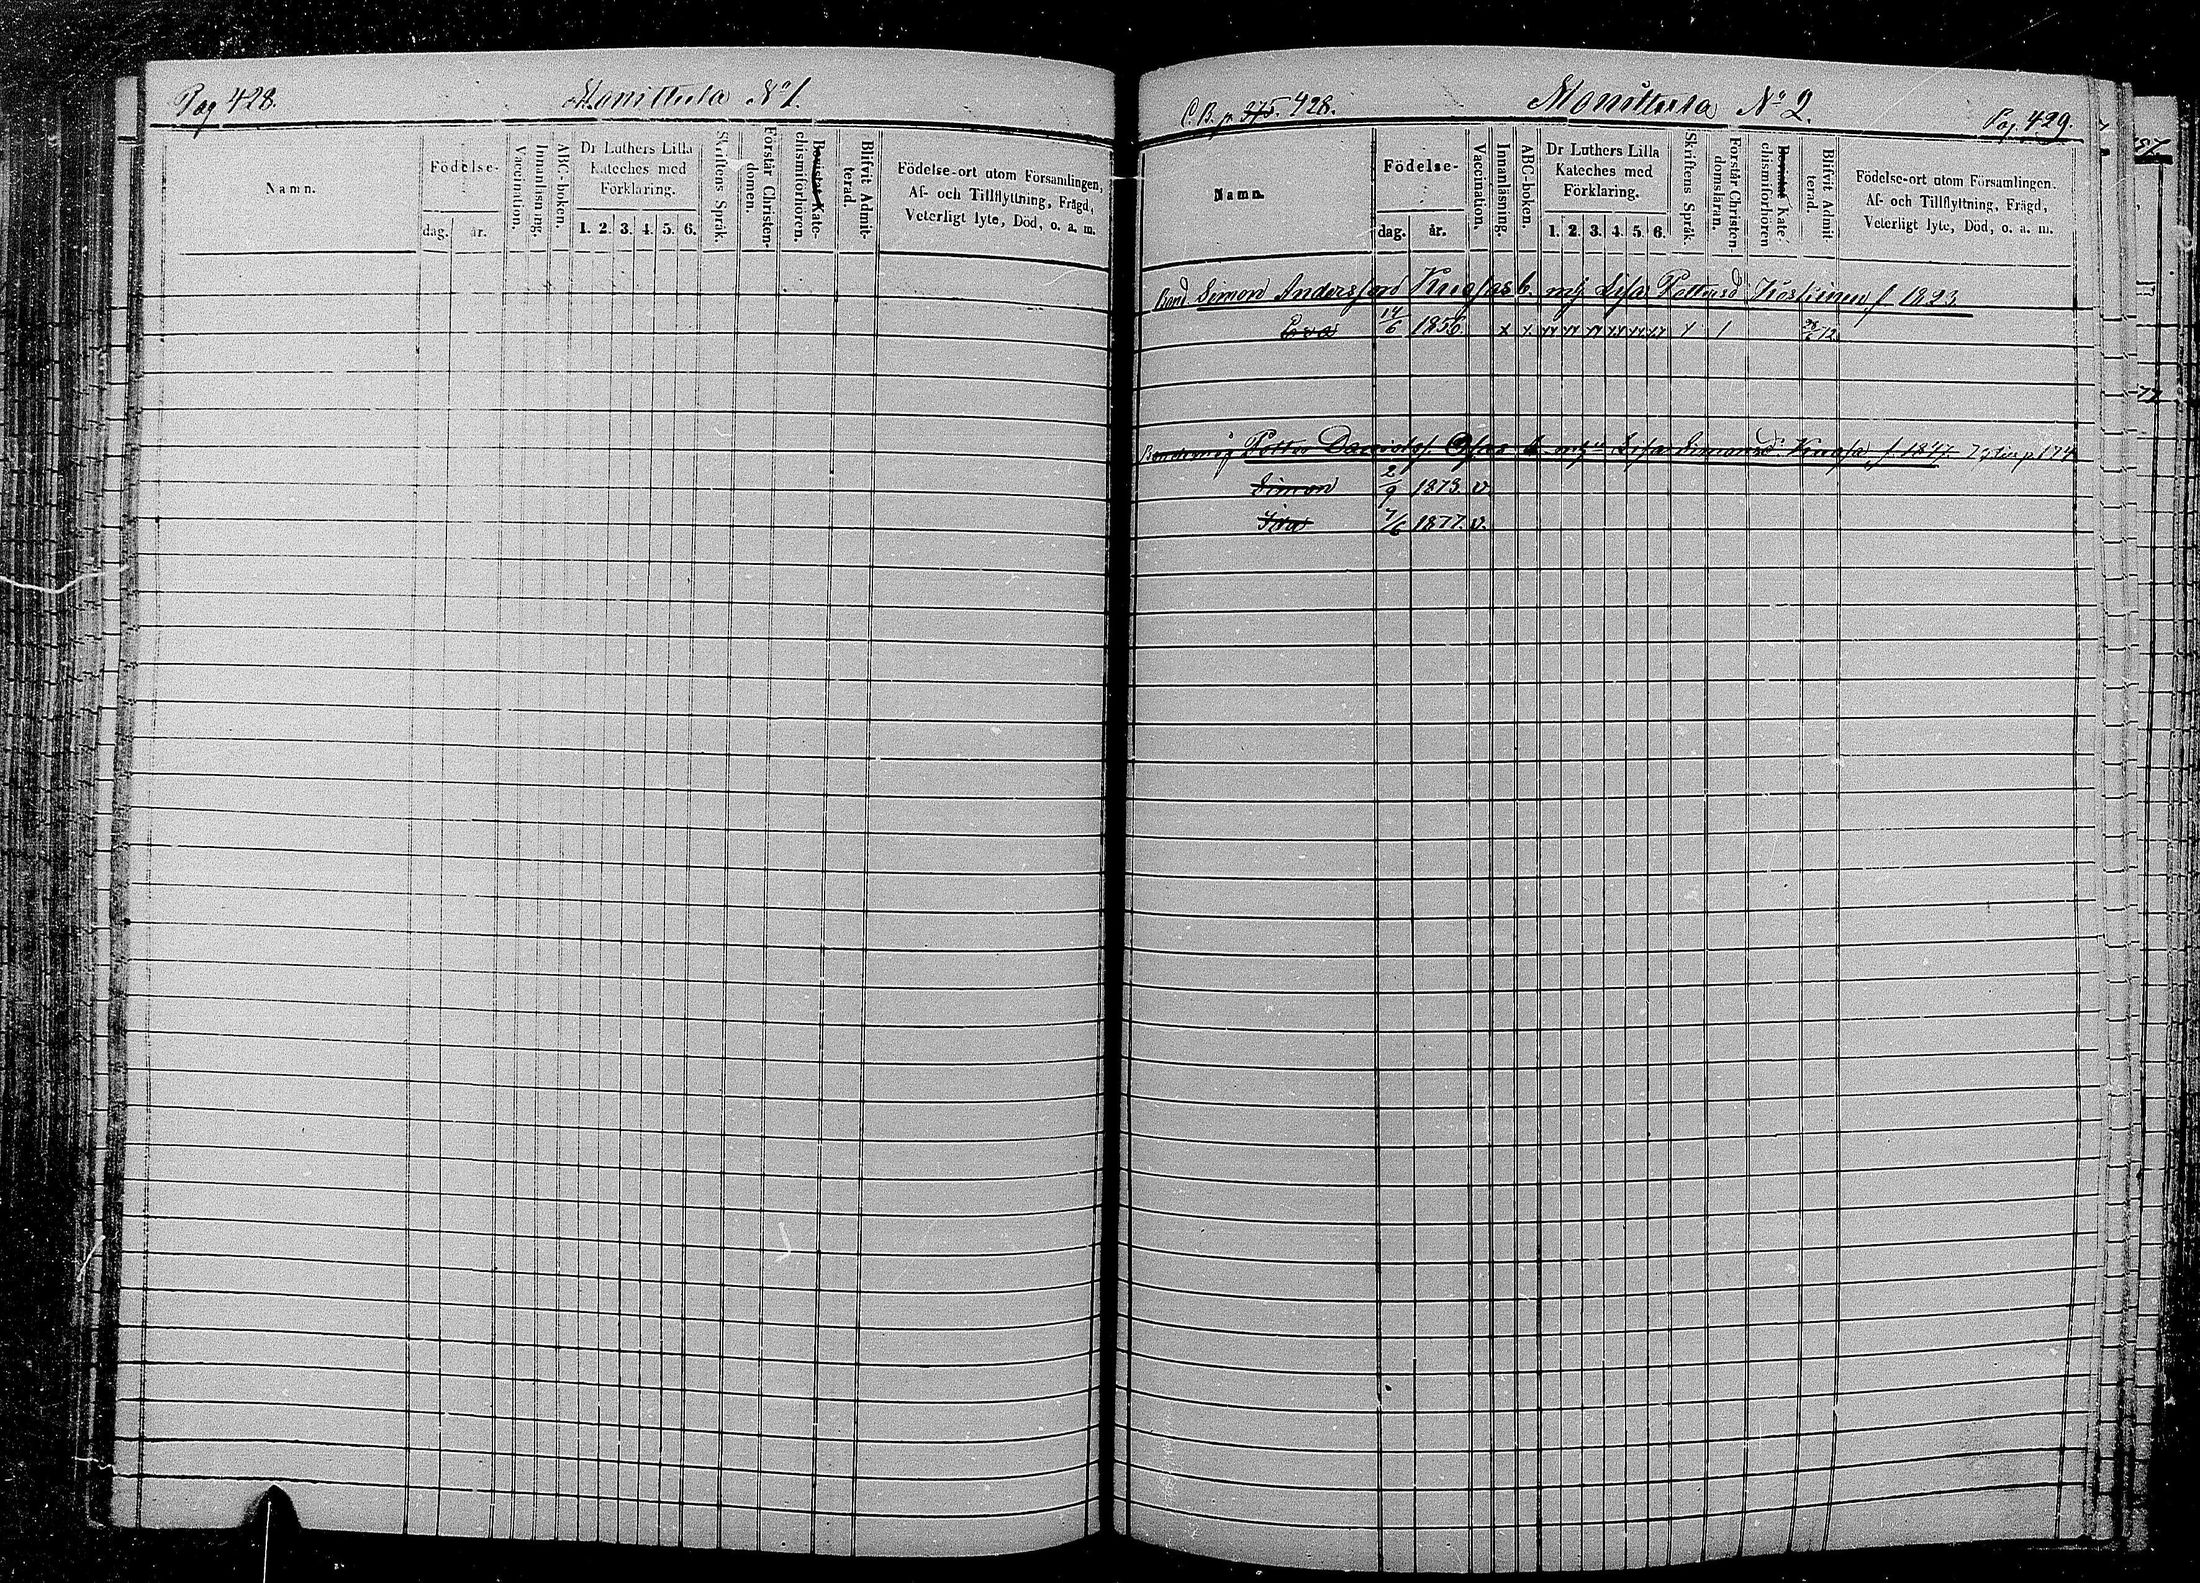 Pag 428.
Monittula No 1.
Namn.
Födelse-
dag. år.
Vaccination.
Innanläsning.
ABC-boken.
Dr Luthers Lilla
Kateches med
Förklaring.
1. 2. 3. 4. 5. 6.
Skriftens Språk.
Förstår Christen-
domen.
Bevistat Kate-
chismiförhören.
Blifvit Admit-
terad.
Födelse-ort utom Församlingen,
Af- och Tillflyttning, Frägd,
Veterligt lyte, Död, o. a. m.
C. B. p. 375. 428.
Monittula No 2.
Pag. 429.
Namn.
Födelse-
dag. år.
Vaccination.
Innanläsning.
ABC-boken.
Dr Luthers Lilla
Kateches med
Förklaring.
1. 2. 3. 4. 5. 6.
Skriftens Språk.
Förstår Christen-
domsläran.
Bevistat Kate-
chismiförhören
Blifvit Admit-
terad.
Födelse-ort utom Församlingen.
Af- och Tillflyttning, Frägd,
Veterligt lyte, Död, o. a. m.
Bond Simon Andersson Lisa Pettersd f 1823
Eva 14/6 1856
Petter Davidsf. Lisa Simonsd f 1847
Simon 2/9 1873. v.
7/6 1877. v.